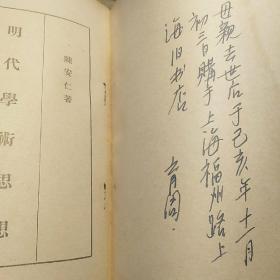 母親去世后于己亥年十一月
初三日購于上海福州路上
海旧书店
陳安仁著
明代學術思想